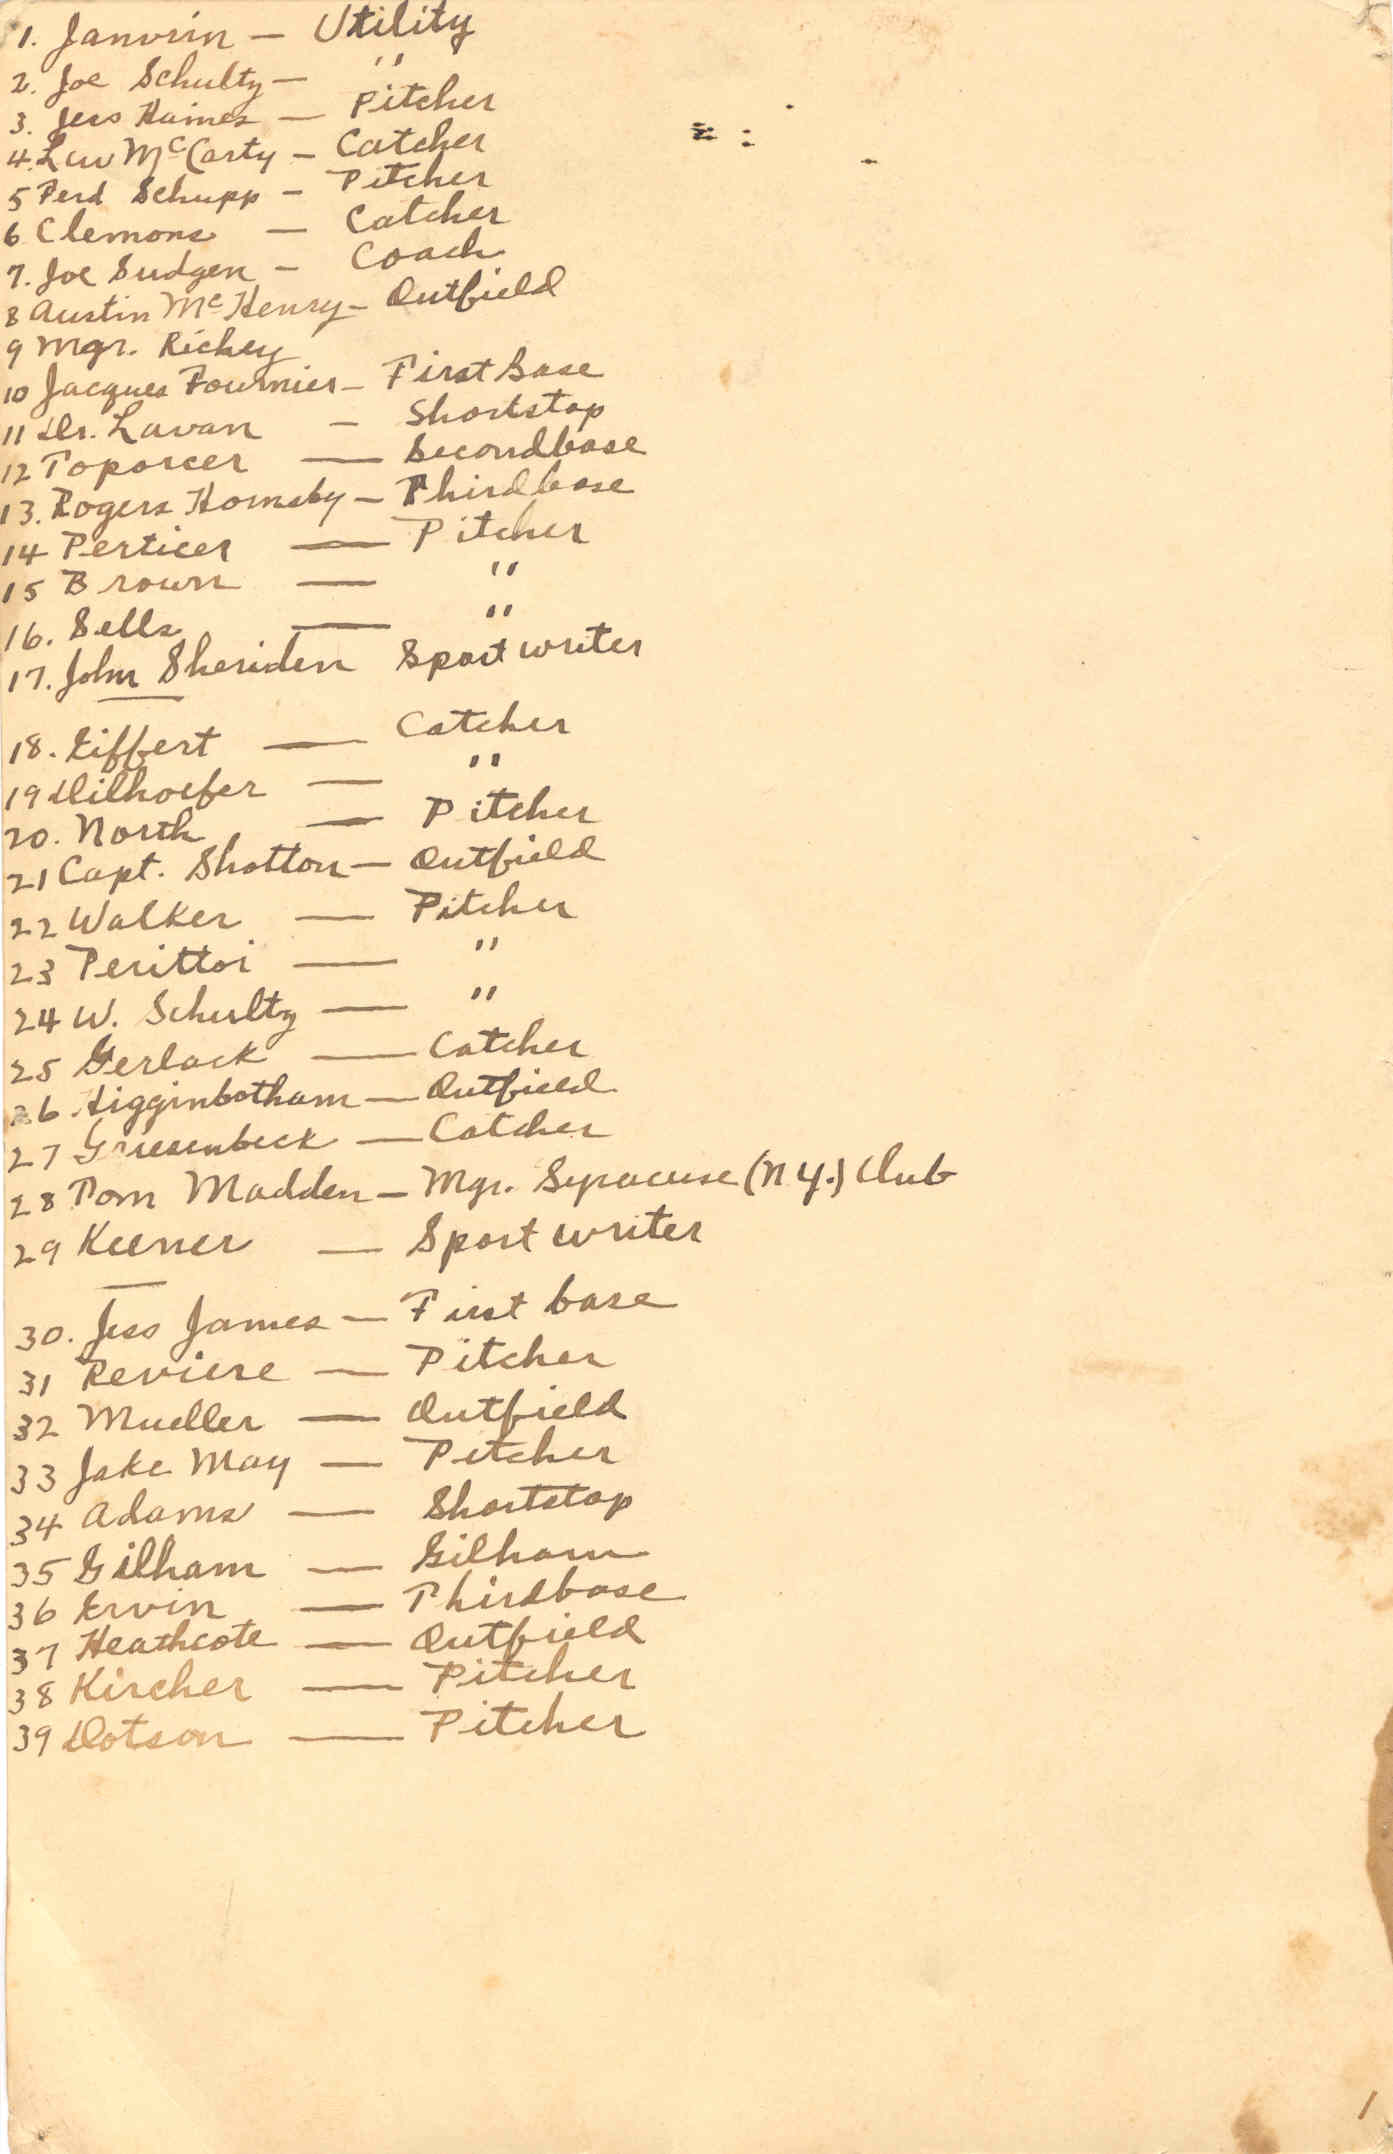 1. Janvrin — Utility
2. Joe Schultz — "
3. Jess Haines — Pitcher
4. Lew McCarty — Catcher
5 Ferd Schupp — Pitcher
6 Clemons — Catcher
7. Joe Sudgen — Coach
8 Austin McHenry — Outfield
9 Mgr. Rickey
10 Jacques Fournier — First base
11 Dr. Lavan — Shortstop
12 Toporcer — Secondbase
13. Rogers Hornsby — Thirdbase
14 Perticer — Pitcher
15 Brown — "
16. Sells — "
17. John Sheriden Sport writer
18. Giffert — Catcher
19 Dilhoefer — "
20. North — Pitcher
21 Capt. Shotton — Outfield
22 Walker — Pitcher
23 Perittoi — "
24 W. Schultz — "
25 Gerlack — Catcher
26. Higginbotham — Outfield
27 Griesenbeck — Catcher
28 Tom Madden — Mgr. Syracuse (N.Y.) Club
29 Keener — Sport writer
30. Jess James — First base
31 Reviere — Pitcher
32 Mueller — Outfield
33 Jake May — Pitcher
34 Adams — Shortstop
35 Gilham — Gilham
36 Ervin — Thirdbase
37 Heathcote — Outfield
38 Kircher — Pitcher
39 Dotson — Pitcher
1